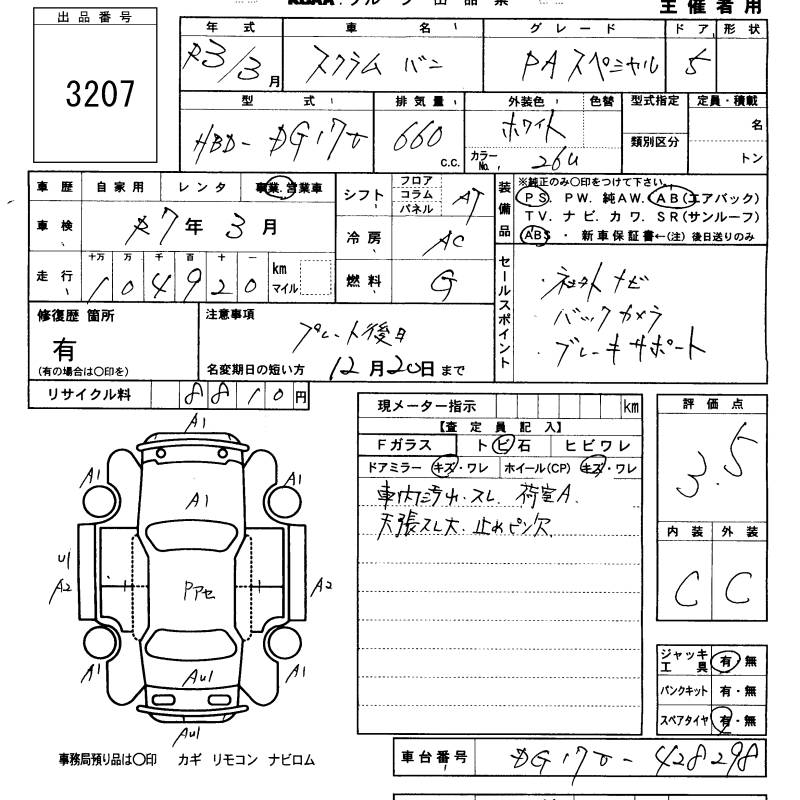 主催者用
出品番号
3207
年式 車名 グレード ドア 形状
R3/3月 スクラム バン PAスペシャル 5
型式 排気量 外装色 色替 型式指定 定員・積載
HBD-DG17V 660 c.c. ホワイト カラーNo. 26U 類別区分 名 トン
車歴 自家用 レンタ 事業.営業車
車検 R7年3月
走行 十万 万 千 百 十 一
104920 km マイル
シフト フロア コラム パネル AT
冷房 AC
燃料 G
装備品
※純正のみ○印をつけて下さい。
PS. PW. 純AW. AB(エアバック)
TV. ナビ. カワ. SR(サンルーフ)
ABS ・ 新車保証書←(注) 後日送りのみ
セールスポイント
・社外ナビ
・バックカメラ
・ブレーキサポート
修復歴 箇所
有
(有の場合は○印を)
注意事項
プレート後日
名変期日の短い方 12月20日まで
リサイクル料 8810円
現メーター指示 km
【査定員記入】
Fガラス トビ石 ヒビワレ
ドアミラー キズ・ワレ ホイール(CP) キズ・ワレ
車内汚れ.スレ. 荷室A.
天張スレ大. 止めピン欠
評価点
3.5
内装 外装
C C
A1
A1 A1 A1
U1
A2 Pアセ A2
A1 A1
AU1
AU1
ジャッキ工具 有・無
パンクキット 有・無
スペアタイヤ 有・無
事務局預り品は○印 カギ リモコン ナビロム
車台番号 DG17V-428298